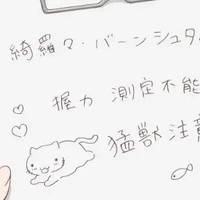 綺羅々・バーンシュタ
握力 測定不能
猛獣注意